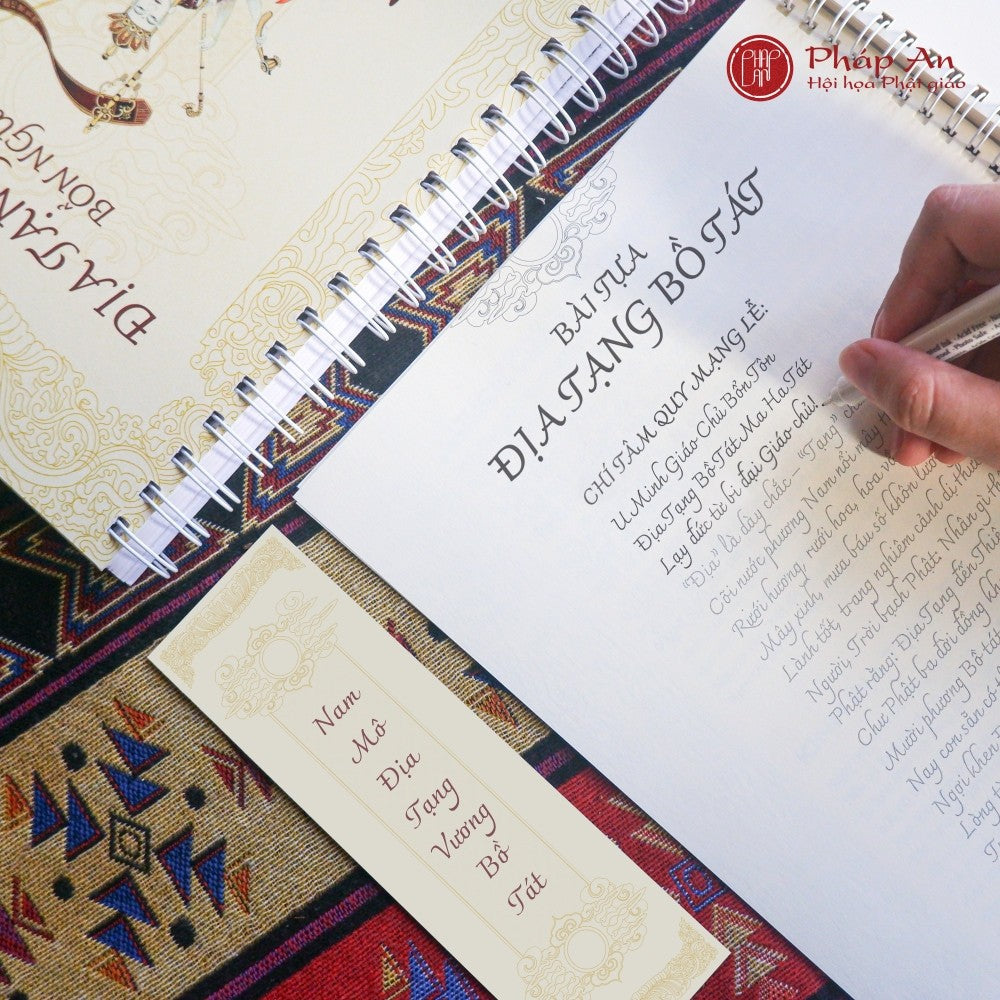 PHÁP
ẤN
Pháp Ấn
Hội họa Phật giáo
ĐỊA TẠNG
BỔN
BÀI TỰA
ĐỊA TẠNG BỒ TÁT
CHÍ TÂM QUY MẠNG LỄ:
U Minh Giáo Chủ Bổn Tôn
Địa Tạng Bồ Tát Ma Ha Tát
Lạy đức từ bi đại Giáo chủ!
"Địa" là dày chắc – "Tạng"
Cõi nước phương Nam nổi mây
Rưới hương, rưới hoa, hoa
Mây xinh, mưa báu số khôn lường
Lành tốt, trang nghiêm cảnh dị
Người, Trời bạch Phật: Nhân gì
Phật rằng: Địa Tạng đến
Chư Phật ba đời đồng
Mười phương Bồ-tát
Nay con sẵn có
Ngợi khen
Lòng
Nam
Mô
Địa
Tạng
Vương
Bồ
Tát